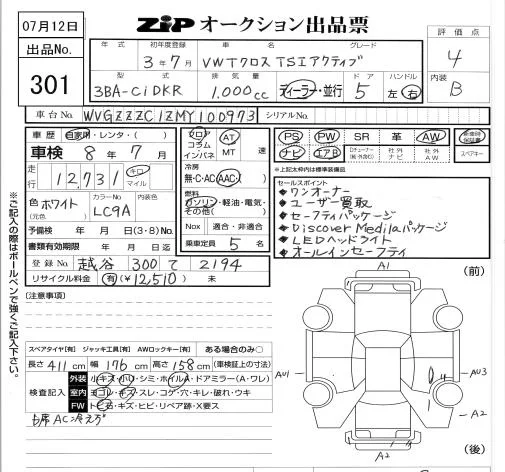 07月12日
ZIP オークション出品票
出品No.
301
年式 初年度登録 車名 グレード
3年7月 VWTクロス TSIアクティブ
型式 排気量 ドア ハンドル
3BA-C1DKR 1.000cc ディーラー・並行 5 左 右
評価点
4
内装
B
車台No. WVGZZZC1ZMY100973 シリアルNo.
車歴 自家用・レンタ・( )
車検 8年7月
走行 12,731 キロ マイル
色 ホワイト (元色) カラーNo. LC9A 内装色
予備検 年 月 日(3・8)No.
書類有効期限 年 月 日迄
登録No. 越谷 300 て 2194
リサイクル料金 有(¥12,510) 未
フロア コラム インパネ AT MT 速
冷房
無・C・AC・AAC
燃料
ガソリン・軽油・電気・その他( )
Nox 適合・非適合
乗車定員 5 名
PS PW SR 革 AW
ナビ エアB 社外ナビ 社外AW スペアキー
※上記太枠内は標準装備品
セールスポイント
ワンオーナー
ユーザー買取
セーフティパッケージ
Discover Mediaパッケージ
LEDヘッドライト
オールインセーフティ
(注意事項)
スペアタイヤ[有] ジャッキ工具[有] AWロックキー[有] ある場合のみ○
長さ 411cm 幅 176cm 高さ 158cm (車検証上の寸法)
検査記入
外装 小キズ・小凹・シミ・ホイルA・ドアミラー(A・ワレ)
室内 ヨゴレ・キズ・スレ・コゲ・穴・キレ・破れ・ウキ
FW トビ石・キズ・ヒビ・リペア跡・X要ス
A1
(前)
AU1
AU3
A2
A2
(後)
※ご記入の際はボールペンで強くご記入下さい。